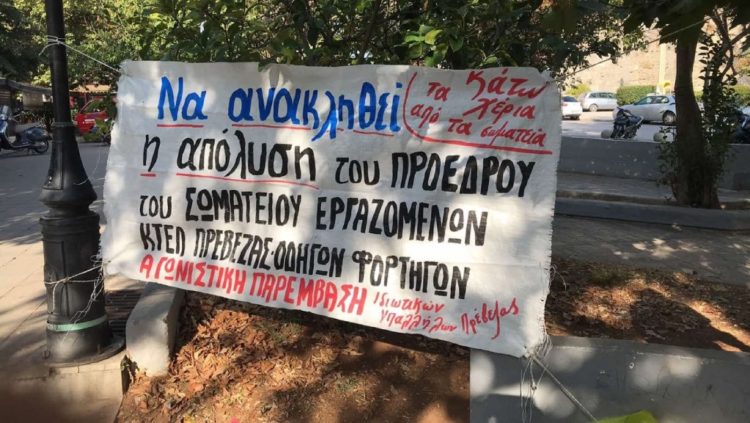 Να ανακληθεί
(Κάτω
τα χέρια
από τα σωματεία
η απόλυση του ΠΡΟΕΔΡΟΥ
του ΣΩΜΑΤΕΙΟΥ ΕΡΓΑΖΟΜΕΝΩΝ
ΚΤΕΛ ΠΡΕΒΕΖΑΣ-ΟΔΗΓΩΝ ΦΟΡΤΗΓΩΝ
ΑΓΩΝΙΣΤΙΚΗ ΠΑΡΕΜΒΑΣΗ Ιδιωτικών
Υπαλλήλων Πρέβεζας